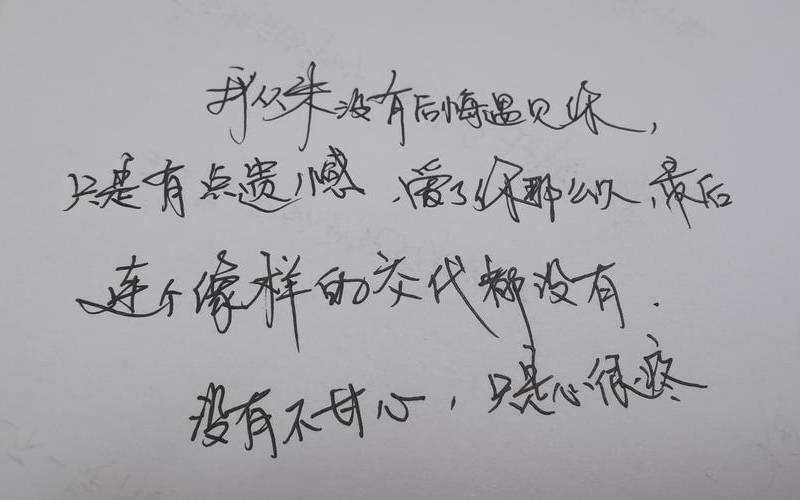 我从来没有后悔遇见你,
只是有点遗憾,爱了你那么久,最后
连个像样的交代都没有.
没有不甘心,只是心很疼